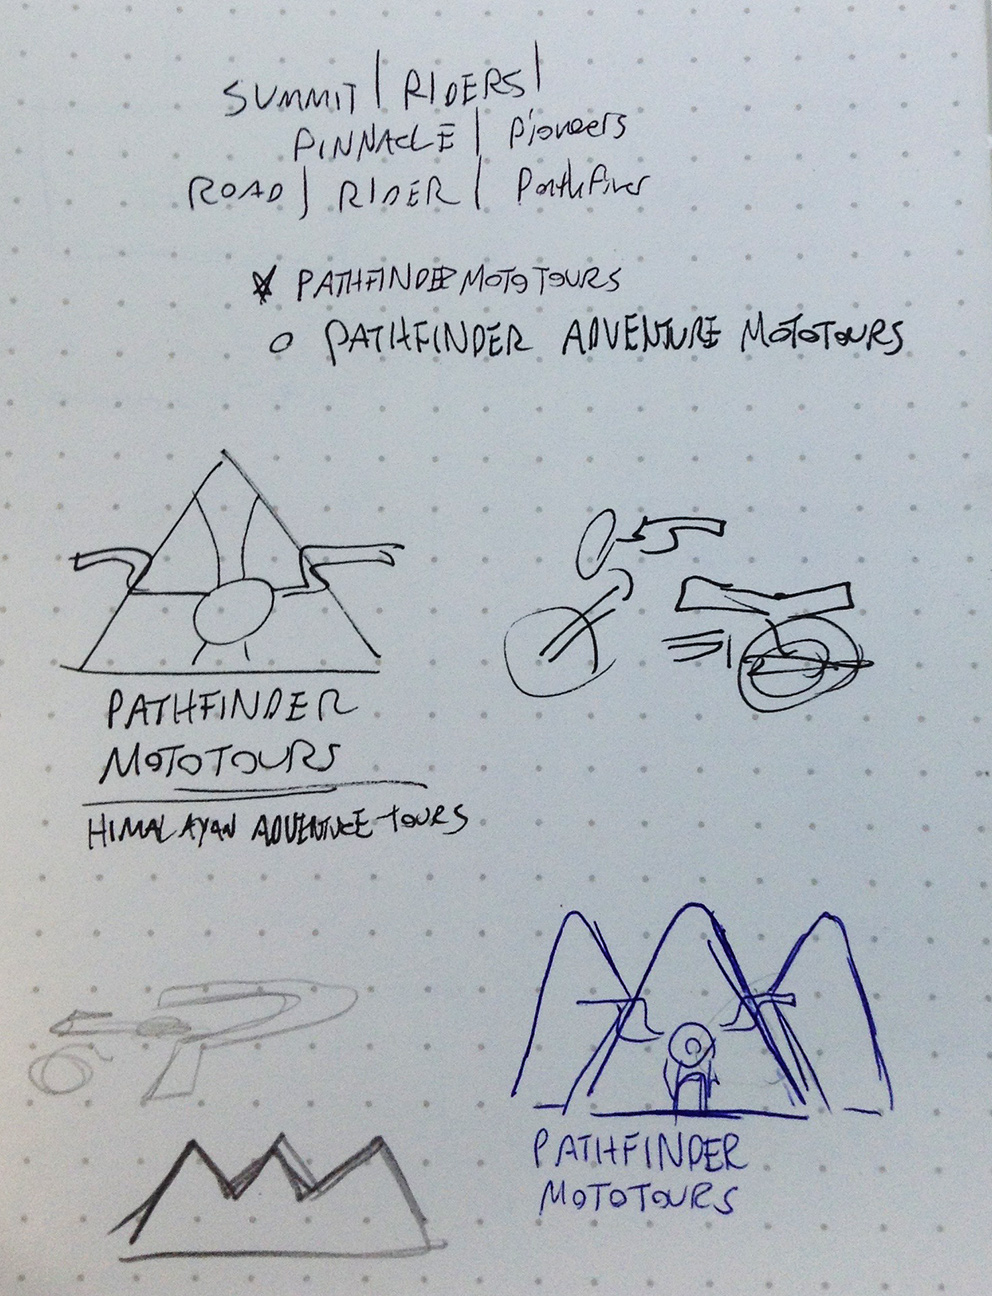 SUMMIT | RIDERS |
PINNACLE | Pioneers
ROAD | RIDER |
PATHFINDER MOTO TOURS
PATHFINDER ADVENTURE MOTOTOURS
PATHFINDER
MOTOTOURS
HIMALAYAN ADVENTURE TOURS
PATHFINDER
MOTOTOURS